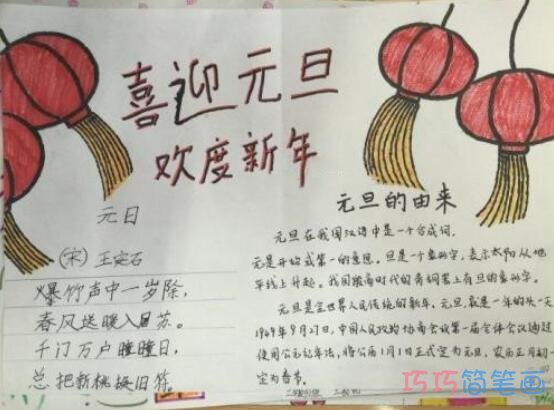 喜迎元旦
欢度新年
元日
(宋) 王安石
爆竹声中一岁除,
春风送暖入屠苏。
千门万户曈曈日,
总把新桃换旧符。
元旦的由来
元旦在我国汉语中是一个合成词。
元是开始或第一的意思,旦是一个象形字,表示太阳从地
平线上升起。我国殷商时代的青铜器上有旦的象形字。
元旦是全世界人民传统的新年。元旦,就是一年的头一天
1949年9月27日,中国人民政协商会议第一届全体会议通过
使用公元纪年法,将公历1月1日正式定为元旦,农历正月初一
定为春节。
巧巧简笔画